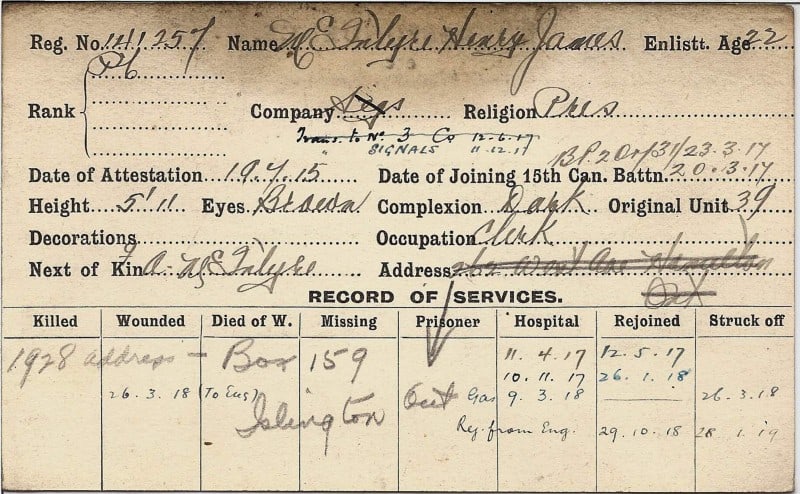 Reg. No. 141257 Name McIntyre Henry James Enlistt. Age 22
Pt
Rank Company Sigs Religion Pres
Trans. to No 3 Co 12.6.17
" SIGNALS 11.12.17
B.P. 2 Or/31/23.3.17
Date of Attestation 19.7.15 Date of Joining 15th Can. Battn. 20.3.17
Height 5'11 Eyes Brown Complexion Dark Original Unit 39
Decorations Occupation Clerk
Next of Kin A. McIntyre Address 262 West Ave Hamilton
Ont
RECORD OF SERVICES.
Killed Wounded Died of W. Missing Prisoner Hospital Rejoined Struck off
1928 address - Box 159 11.4.17 12.5.17
10.11.17 26.1.18
26.3.18 (To Eng) Islington Ont Gas 9.3.18 26.3.18
Rej. from Eng. 29.10.18 28.1.19